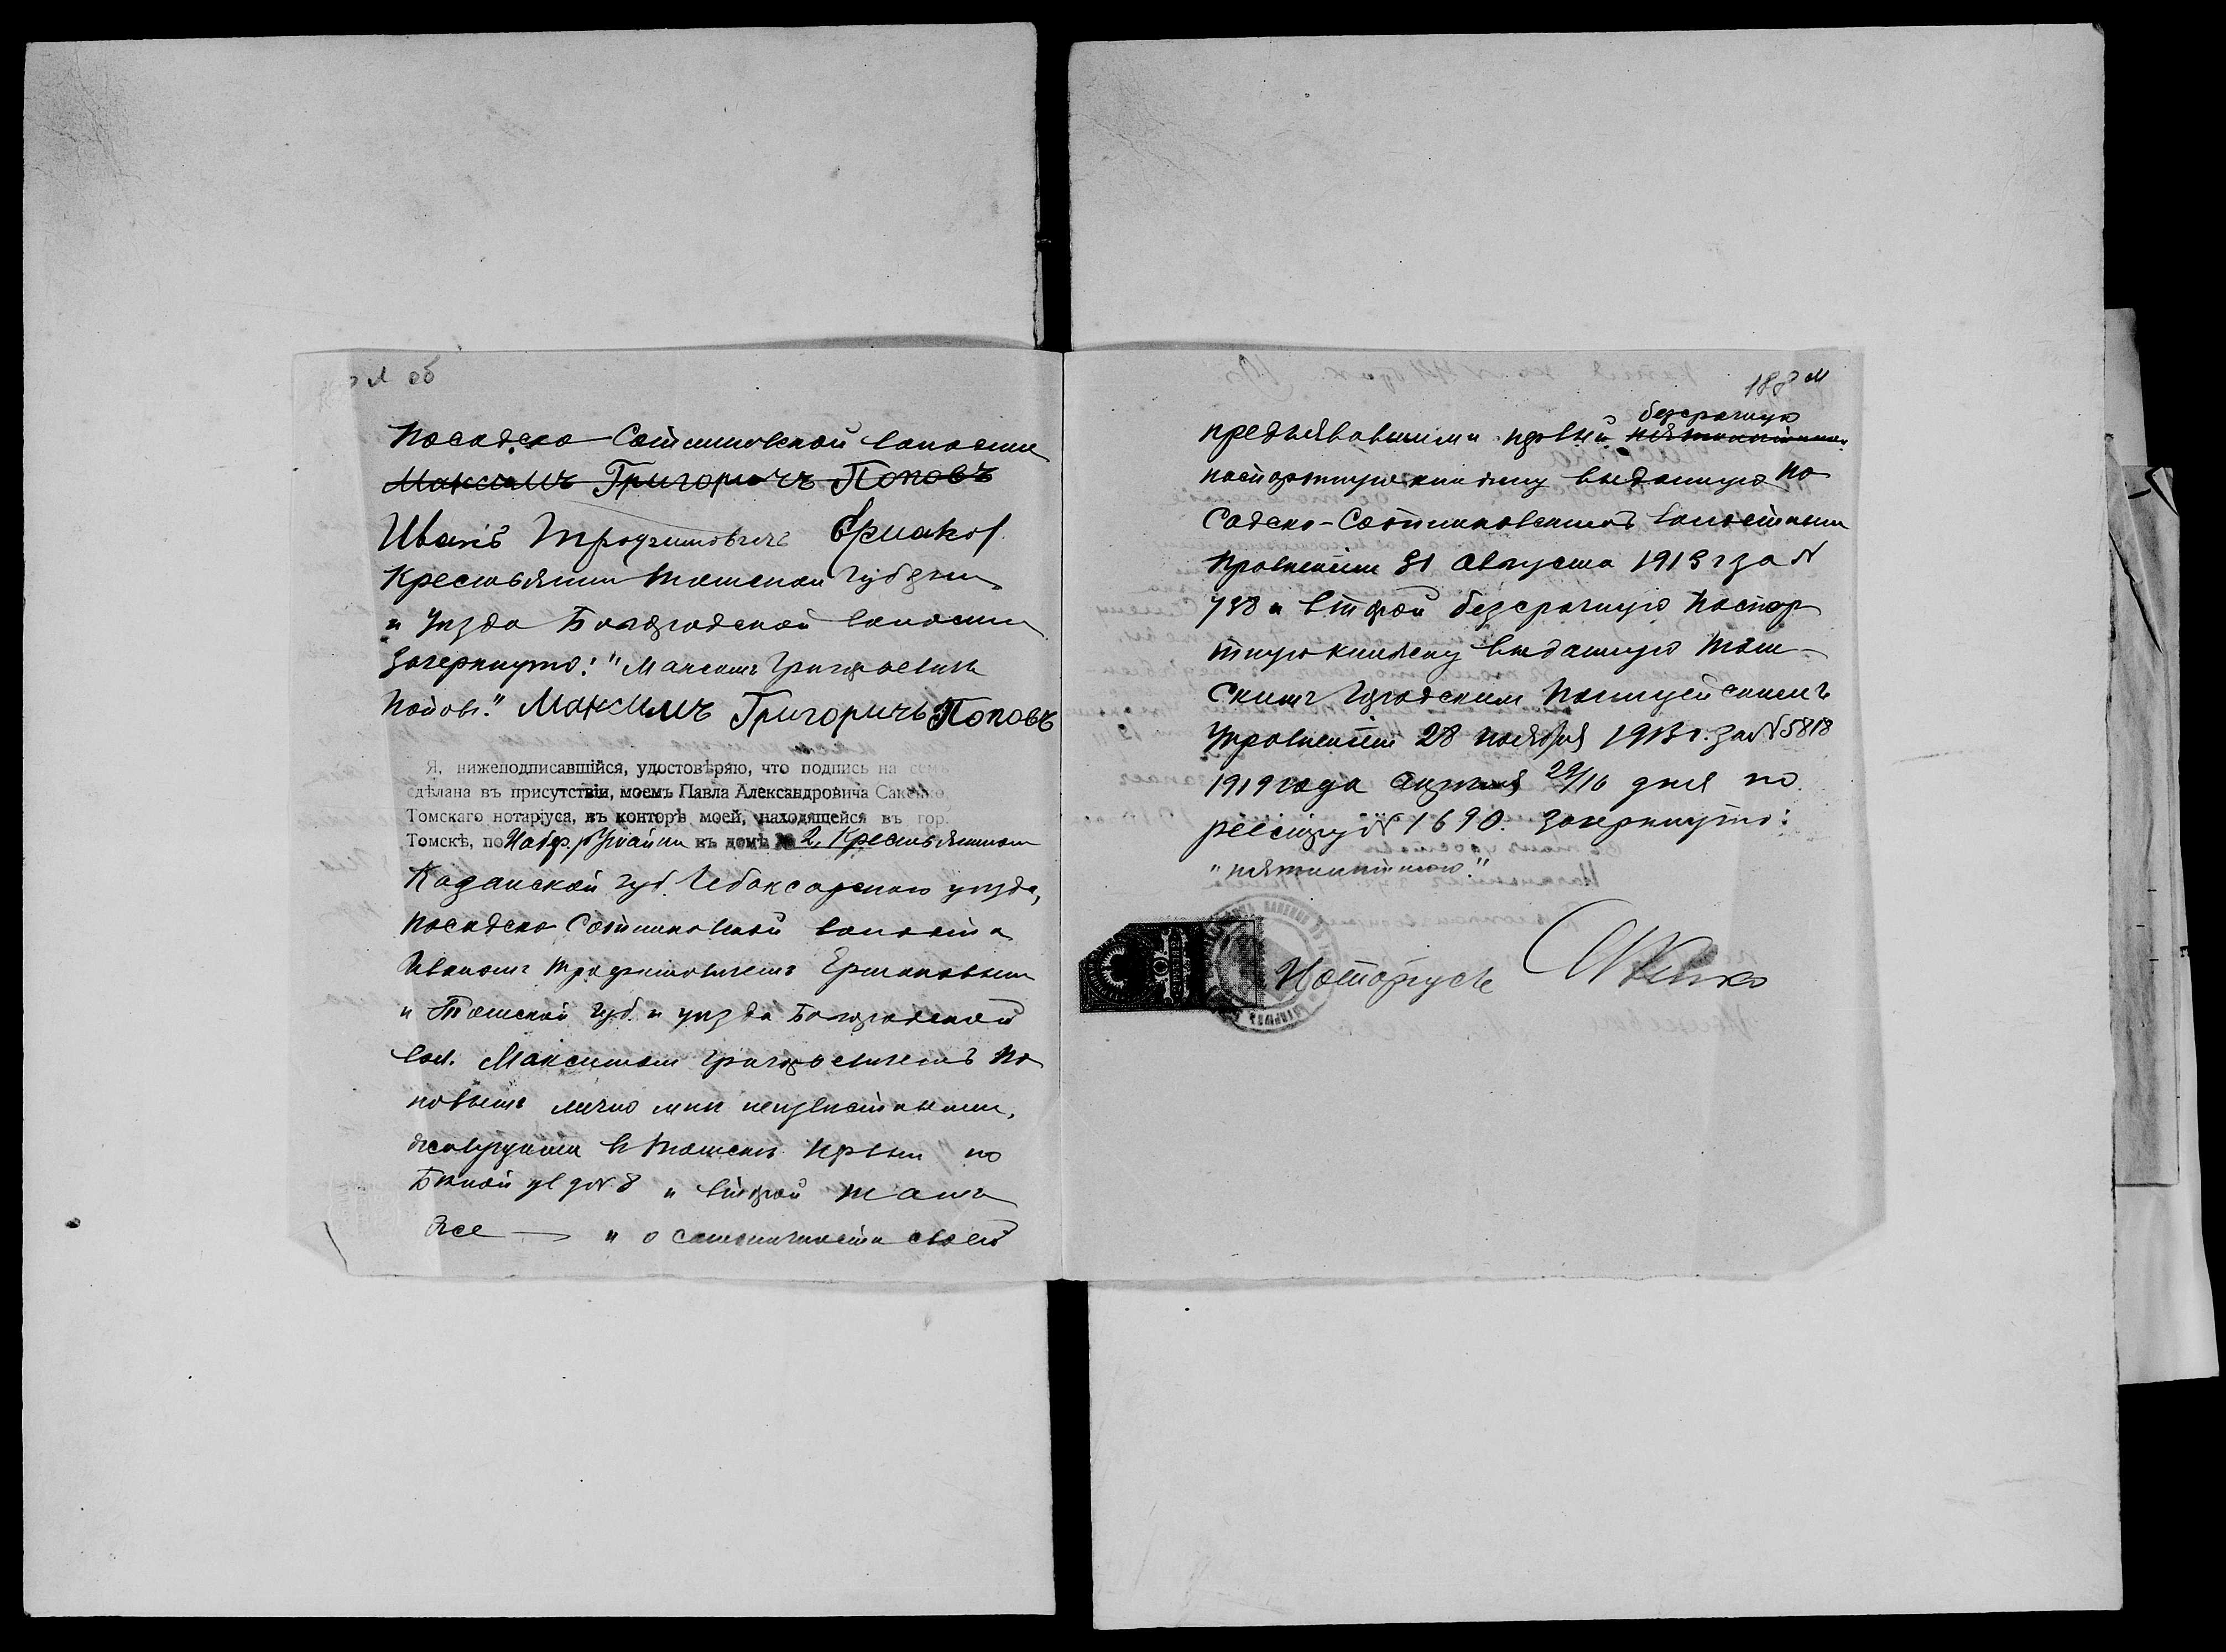 об
Посадско Сотниковской волости
Максимъ Григоричъ Поповъ
Иванъ Трофимовичъ Ермаков
Крестьянин Томской губернии
и уѣзда Богородской волости
Зачеркнуто: "Максимъ Григорьевичъ
Поповъ." Максимъ Григоричь Поповъ
Я, нижеподписавшійся, удостовѣряю, что подпись на семъ
сдѣлана въ присутствіи, моемъ Павла Александровича Сакенко,
Томскаго нотаріуса, въ конторѣ моей, находящейся въ гор.
Томскѣ, по Набер. р. Ушайки въ домѣ № 2, Крестьянином
Казанской губ. Чебоксарскаго уѣзда,
Посадско Сотниковской волости
Иваномъ Трофимовичемъ Ермаковым
и Томской губ. и уѣзда Богородской
вол. Максимом Григорьевичемъ По
повымъ лично мнѣ неизвѣстными,
живущими въ Томскѣ первый по
ул д № 8 и второй тамъ
же — и о самоличности своей
188
безсрочную
предъявившими первый пятилѣтнюю
паспортную книжку выданную По
садско-Сотниковскимъ волостным
Правленіем 31 августа 1913 г за №
788 и второй безсрочную паспор
тную книжку выданную Том-
скимъ Городским Полицейскимъ
Управленіем 28 ноября 1913 г. за № 5818
1919 года апрѣля 29/16 дня по
реестру № 1690. Зачеркнуто:
"пятилѣтнюю."
Нотаріусъ